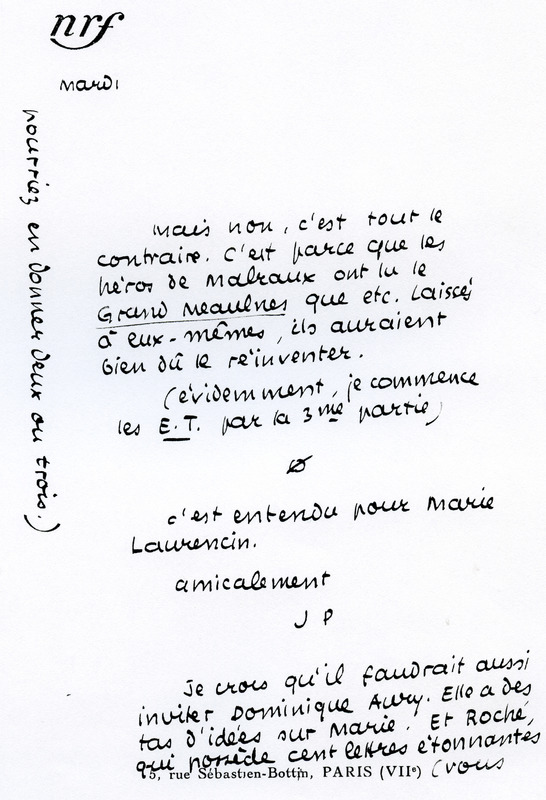 nrf
mardi
Mais non, c'est tout le
contraire. C'est parce que les
héros de Malraux ont lu le
Grand Meaulnes que etc. Laissés
à eux-mêmes, ils auraient
bien dû le réinventer.
(évidemment, je commence
les E.T. par la 3me partie)
c'est entendu pour Marie
Laurencin.
amicalement
J P
Je crois qu'il faudrait aussi
inviter Dominique Aury. Elle a des
tas d'idées sur Marie. Et Roché,
qui possède cent lettres étonnantes
(vous
pourriez en donner deux ou trois.)
5, rue Sébastien-Bottin, PARIS (VIIe)